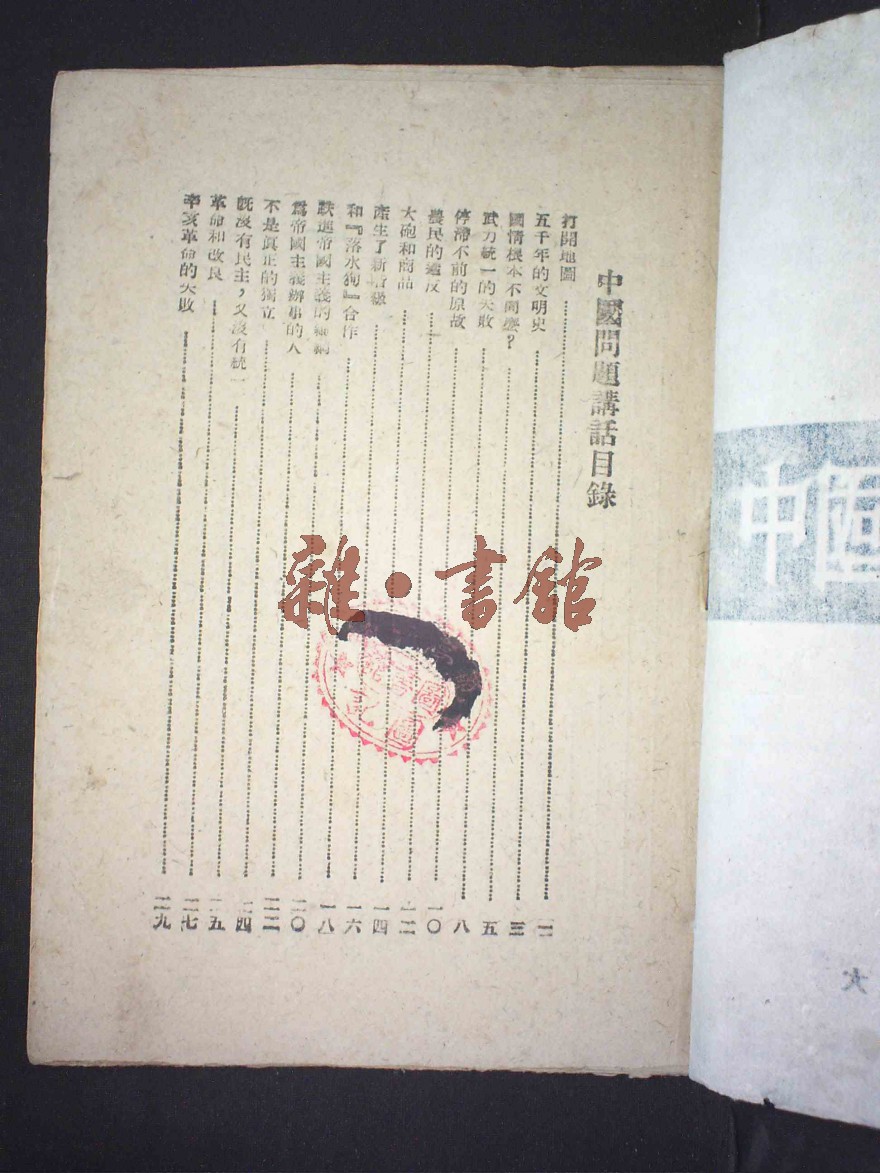 中國問題講話目錄
打開地圖……
五千年的文明史……三
國情根本不同麼?……五
武力統一的失敗……八
停滯不前的原故……一〇
農民的造反……一二
大砲和商品……一四
產生了新階級……一六
和『落水狗』合作……一八
跌進帝國主義的……二〇
爲帝國主義辦事的人……二二
不是眞正的獨立……二四
既沒有民主,又沒有統一……二五
革命和改良……二七
辛亥革命的失敗……二九
雜·書館
中國